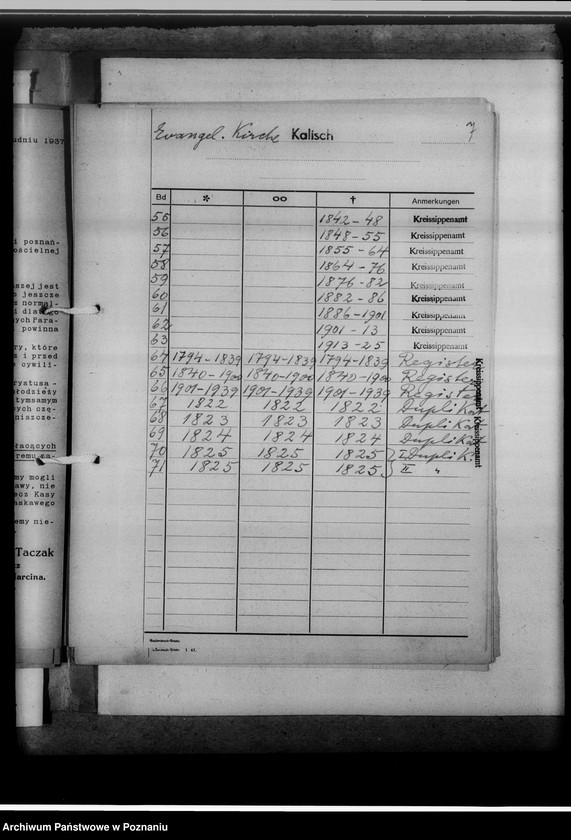 udniu 1937
i poznań-
ościelnej
aszej jest
o jeszcze
z normal-
i dlatego
ych Para-
powinna
ry, które
i przed
cywili-
ryatusa -
młodzieży
tymsamym
ych czę-
niszcze-
łacących
remu za-
my mogli
awy, nie
ecz Kasy
askawego
emy nie-
Taczak
z
Marcina.
Evangel. Kirche Kalisch 7
Bd * ∞ † Anmerkungen
55 1842-48 Kreissippenamt
56 1848-55 Kreissippenamt
57 1855-64 Kreissippenamt
58 1864-76 Kreissippenamt
59 1876-82 Kreissippenamt
60 1882-86 Kreissippenamt
61 1886-1901 Kreissippenamt
62 1901-13 Kreissippenamt
63 1913-25 Kreissippenamt
64 1794-1839 1794-1839 1794-1839 Register
65 1840-1900 1840-1900 1840-1900 Register
66 1901-1939 1901-1939 1901-1939 Register
67 1822 1822 1822 Duplikat
68 1823 1823 1823 Duplikat
69 1824 1824 1824 Duplikat
70 1825 1825 1825 I Duplik.
71 1825 1825 1825 II "
Kreissippenamt Kreissippenamt
Archiwum Państwowe w Poznaniu